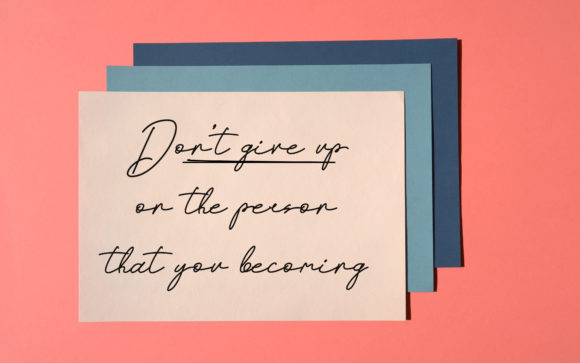 Don't give up
on the person
that you becoming